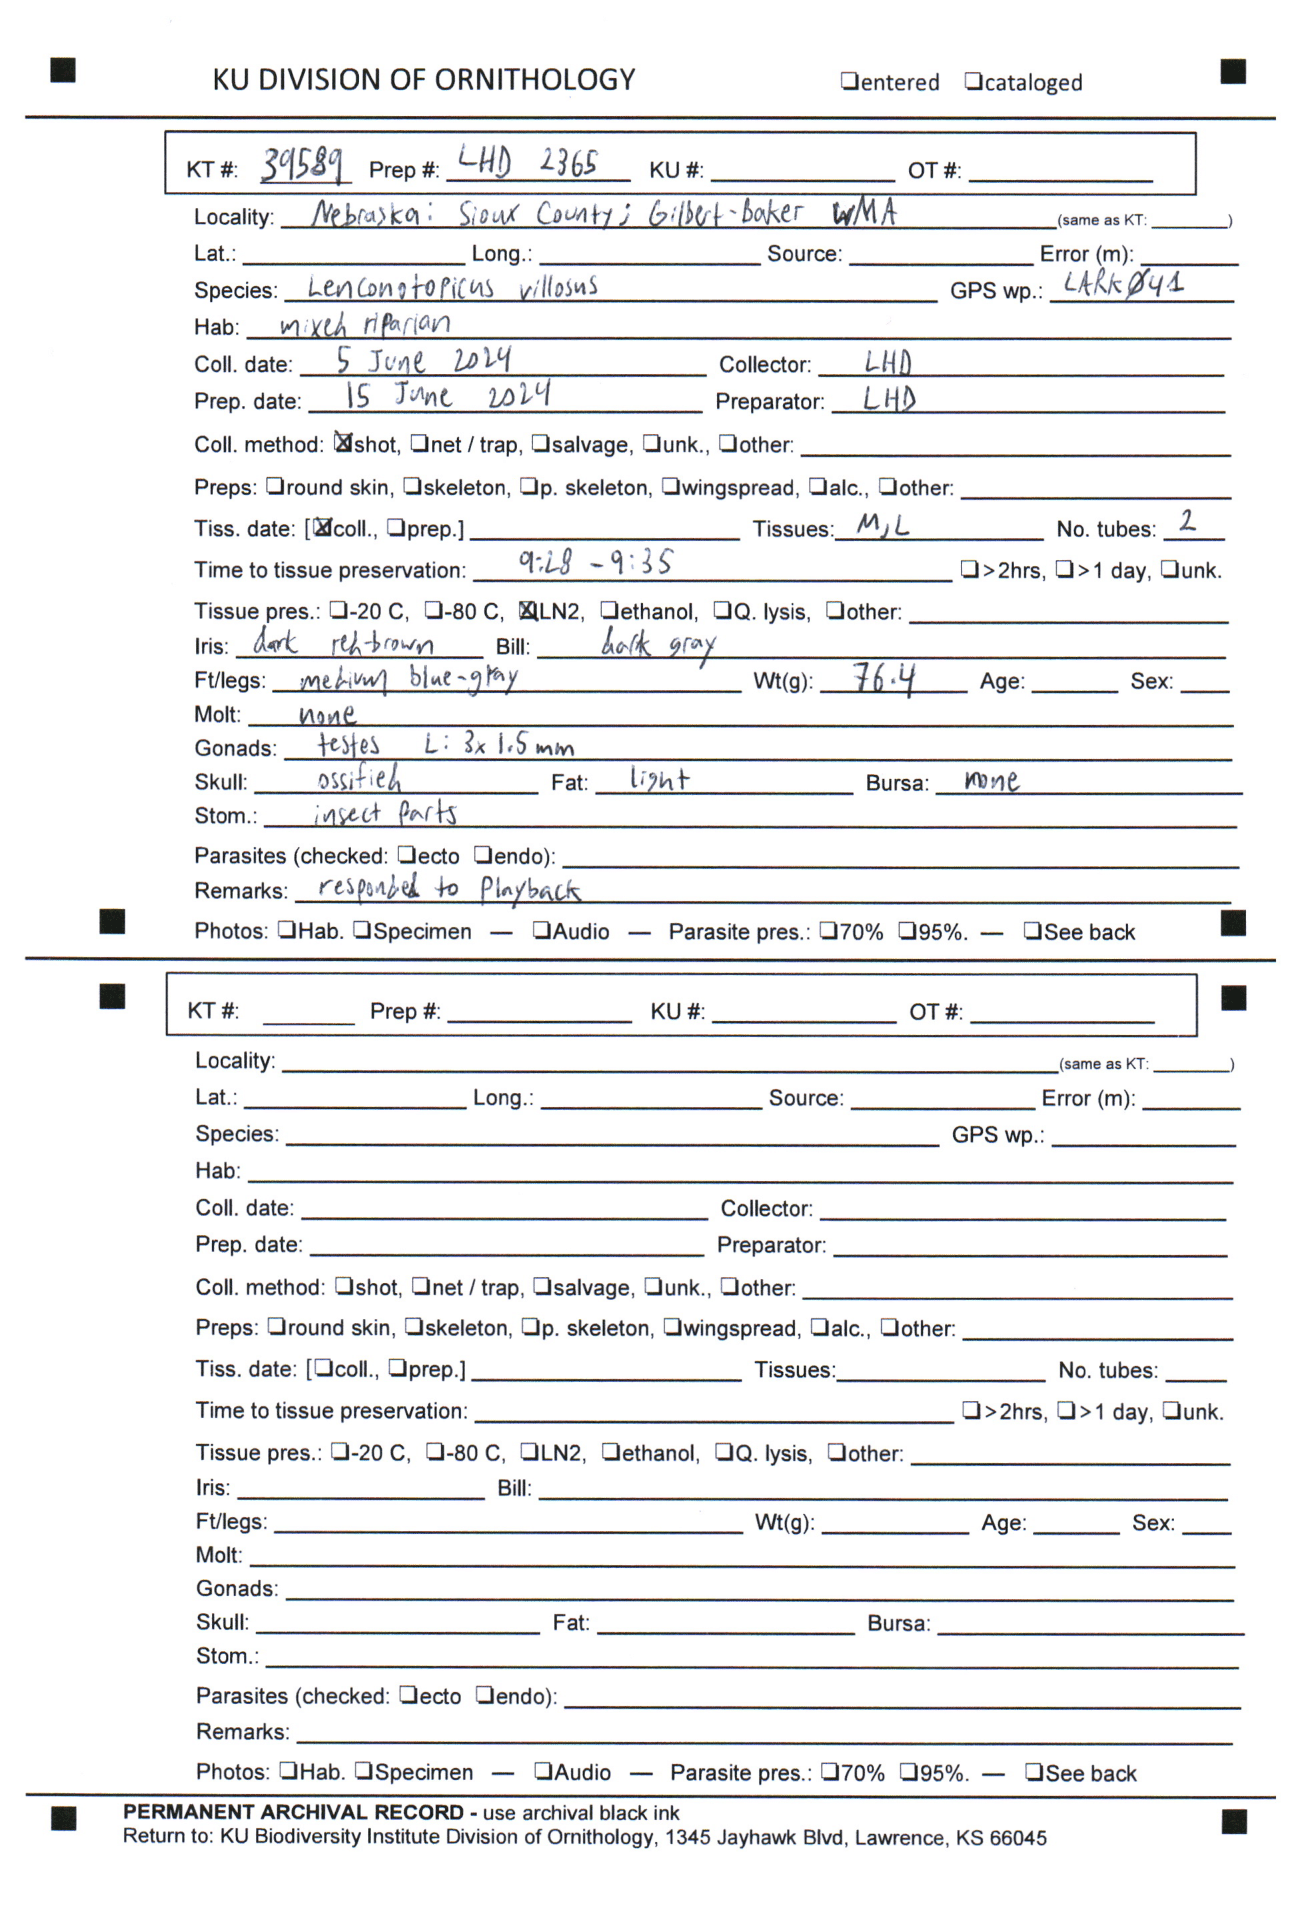 KU DIVISION OF ORNITHOLOGY ❏entered ❏cataloged
KT #: 39589 Prep #: LHD 2365 KU #: ____ OT #: ____
Locality: Nebraska: Sioux County; Gilbert-Baker WMA (same as KT: ____)
Lat.: ____ Long.: ____ Source: ____ Error (m): ____
Species: Leuconotopicus villosus GPS wp.: LARKØ41
Hab: mixed riparian
Coll. date: 5 June 2024 Collector: LHD
Prep. date: 15 June 2024 Preparator: LHD
Coll. method: ☒shot, ❏net / trap, ❏salvage, ❏unk., ❏other: ____
Preps: ❏round skin, ❏skeleton, ❏p. skeleton, ❏wingspread, ❏alc., ❏other: ____
Tiss. date: [☒coll., ❏prep.] ____ Tissues: M,L No. tubes: 2
Time to tissue preservation: 9:28 - 9:35 ❏>2hrs, ❏>1 day, ❏unk.
Tissue pres.: ❏-20 C, ❏-80 C, ☒LN2, ❏ethanol, ❏Q. lysis, ❏other: ____
Iris: dark red-brown Bill: dark gray
Ft/legs: medium blue-gray Wt(g): 76.4 Age: ____ Sex: ____
Molt: none
Gonads: testes L: 3x1.5mm
Skull: ossified Fat: light Bursa: none
Stom.: insect parts
Parasites (checked: ❏ecto ❏endo): ____
Remarks: responded to playback
Photos: ❏Hab. ❏Specimen — ❏Audio — Parasite pres.: ❏70% ❏95%. — ❏See back
KT #: ____ Prep #: ____ KU #: ____ OT #: ____
Locality: ____ (same as KT: ____)
Lat.: ____ Long.: ____ Source: ____ Error (m): ____
Species: ____ GPS wp.: ____
Hab: ____
Coll. date: ____ Collector: ____
Prep. date: ____ Preparator: ____
Coll. method: ❏shot, ❏net / trap, ❏salvage, ❏unk., ❏other: ____
Preps: ❏round skin, ❏skeleton, ❏p. skeleton, ❏wingspread, ❏alc., ❏other: ____
Tiss. date: [❏coll., ❏prep.] ____ Tissues: ____ No. tubes: ____
Time to tissue preservation: ____ ❏>2hrs, ❏>1 day, ❏unk.
Tissue pres.: ❏-20 C, ❏-80 C, ❏LN2, ❏ethanol, ❏Q. lysis, ❏other: ____
Iris: ____ Bill: ____
Ft/legs: ____ Wt(g): ____ Age: ____ Sex: ____
Molt: ____
Gonads: ____
Skull: ____ Fat: ____ Bursa: ____
Stom.: ____
Parasites (checked: ❏ecto ❏endo): ____
Remarks: ____
Photos: ❏Hab. ❏Specimen — ❏Audio — Parasite pres.: ❏70% ❏95%. — ❏See back
PERMANENT ARCHIVAL RECORD - use archival black ink
Return to: KU Biodiversity Institute Division of Ornithology, 1345 Jayhawk Blvd, Lawrence, KS 66045